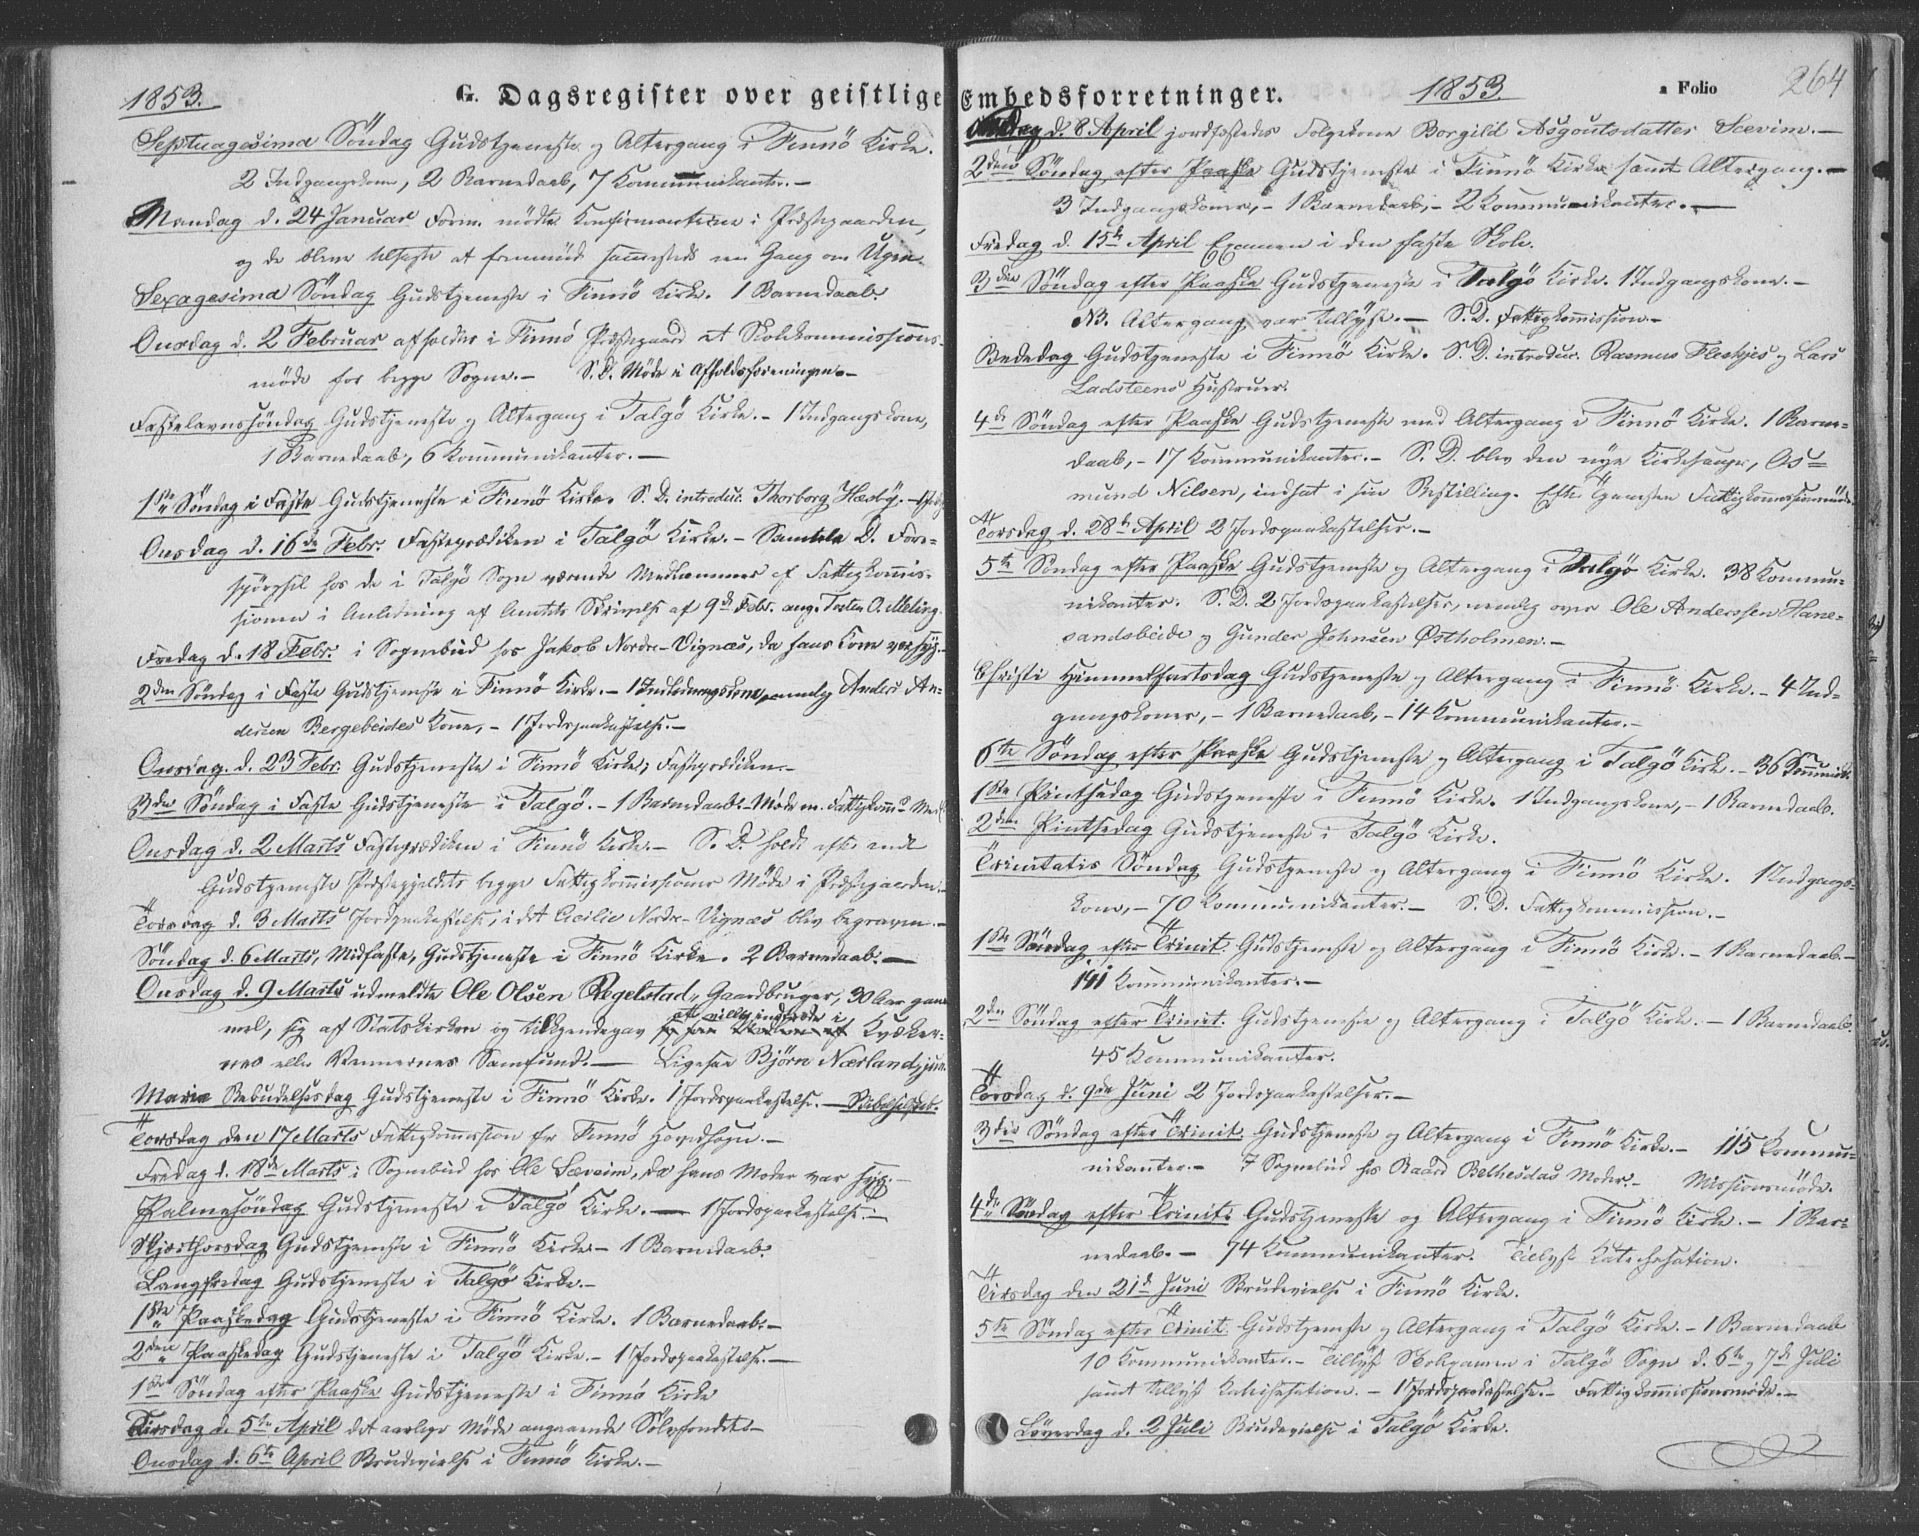 1853.
G. Dagsregister over geistlige
Septuagesima Söndag Gudstjeneste og Altergang i Finnö Kirke.
2 Indgangskoner, 2 Barnedaab, 7 Kommunikanter.—
Mandag d. 24 Januar Form. mödte Konfirmanterne i Præstegaarden,
og de bleve tilsagte at fremmöde sammesteds een Gang om Ugen.
Sexagesima Söndag Gudstjeneste i Finnö Kirke. 1 Barnedaab.
Onsdag d. 2 Februar afholdtes i Finnö Præstegaard et Skolekommissions-
möde for begge Sogne.— S.D. Möde i Afholdsforeningen.—
Fastelavnssöndag Gudstjeneste og Altergang i Talgö Kirke.— 1 Indgangskone,
1 Barnedaab, 6 Kommunikanter.—
1ste Söndag i Faste Gudstjeneste i Finnö Kirke. S.D. introduc. Thorborg Hæsby.—
Onsdag d. 16de Febr. Fasteprædiken i Talgö Kirke.— Samme D. Fore-
spörgsel hos de i Talgö Sogn værende Medlemmer af Fattigkommis-
sionen i Anledning af Amtets Skrivelse af 9de Febr. ang. Torsten O. Meling.
Fredag d. 18 Febr. i Sognebud hos Jakob Nordre-Vignæs, da hans Kone var syg.—
2den Söndag i Faste Gudstjeneste i Finnö Kirke.— 1 Indledningskone, nemlig Anders An-
dersen Bergebeides Kone,— 1 Jordspaakastelse.—
Onsdag. d. 23 Febr. Gudstjeneste i Finnö Kirke; Fasteprædiken.—
3die Söndag i Faste Gudstjeneste i Talgö.— 1 Barnedaab.— Möde m. Fattigkomms Medl.
Onsdag d. 2 Marts Fasteprædiken i Finnö Kirke.— S.D. holdt efter endt
Gudstjeneste Præstegjeldets begge Fattigkommissioner Möde i Præstegaarden.—
Torsdag d. 3 Marts Jordpaakastelse, idet Cecilie Nordre-Vignæs blev begraven.—
Söndag d. 6 Marts, Midfaste, Gudstjeneste i Finnö Kirke. 2 Barnedaab.—
Onsdag d. 9 Marts udmeldte Ole Olsen Regelstad, Gaardbruger, 30 Aar gam-
mel, sig af Statskirken og tilkjendegav at ville indtræde i Kvæker-
nes eller Vennernes Samfund.— Ligesaa Björn Nærland, jun.
Mariæ Bebudelsesdag Gudstjeneste i Finnö Kirke. 1 Jordspaakastelse.— Bibelselskab.
Torsdag den 17 Marts Fattigkommission for Finnö Hovedsogn.—
Fredag d. 18de Marts i Sognebud hos Ole Sæveim, da hans Moder var syg.—
Palmesöndag Gudstjeneste i Talgö Kirke.— 1 Jordspaakastelse.—
Skjærthorsdag Gudstjeneste i Finnö Kirke.— 1 Barnedaab.
Langfredag Gudstjeneste i Talgö Kirke.—
1ste Paaskedag Gudstjeneste i Finnö Kirke. 1 Barnedaab.—
2den Paaskedag Gudstjeneste i Talgö Kirke.— 1 Jordspaakastelse.—
1ste Söndag efter Paaske Gudstjeneste i Finnö Kirke
Tirsdag d. 5te April det aarlige Möde angaaende Sölvfondet.—
Onsdag d. 6te April Brudevielse i Finnö Kirke.—
Embedsforretninger.
1853.
a Folio
264
d. 8 April jordfæstedes Folgekone Borgild Asgoutsdatter Seevim.—
2den Söndag efter Paaske Gudstjeneste i Finnö Kirke samt Altergang.—
3 Indgangskoner,— 1 Barnedaab,— 2 Kommunikanter.—
Fredag d. 15de April Examen i den faste Skole.
3die Söndag efter Paaske Gudstjeneste i Talgö Kirke. 1 Indgangskone.—
NB. Altergang var tillyst.— S.D. Fattigkommission.—
Bededag Gudstjeneste i Finnö Kirke. S.D. introduc. Rasmus Fleskjes og Lars
Ladsteens Hustruer.
4de Söndag efter Paaske Gudstjeneste med Altergang i Finnö Kirke. 1 Barne-
daab,— 17 Kommunikanter.— S.D. blev den nye Kirkesanger, Os-
mund Nilsen, indsat i sin Bestilling. Efter Tjenesten Fattigkommissionsmöde.
Torsdag d. 28de April 2 Jordspaakastelser.—
5te Söndag efter Paaske Gudstjeneste og Altergang i Talgö Kirke. 38 Kommu-
nikanter. S.D. 2 Jordspaakastelser, nemlig over Ole Anderssen Hane-
sandsbeide og Gunder Johnsen Østholmen.—
Christi Himmelfartsdag Gudstjeneste og Altergang i Finnö Kirke.— 4 Ind-
gangskoner,— 1 Barnedaab,— 14 Kommunikanter.—
6te Söndag efter Paaske Gudstjeneste og Altergang i Talgö Kirke.— 36 Kommunik.
1ste Pintsedag Gudstjeneste i Finnö Kirke. 1 Indgangskone,— 1 Barnedaab.
2den Pintsedag Gudstjeneste i Talgö Kirke.
Trinitatis Söndag Gudstjeneste og Altergang i Finnö Kirke. 1 Indgangs-
kone,— 70 Kommunikanter.— S.D. Fattigkommission.—
1ste Söndag efter Trinit. Gudstjeneste og Altergang i Finnö Kirke.— 1 Barnedaab.—
141 Kommunikanter.—
2den Söndag efter Trinit. Gudstjeneste og Altergang i Talgö Kirke.— 1 Barnedaab.
45 Kommunikanter.
Torsdag d. 9de Juni 2 Jordspaakastelser.—
3die Söndag efter Trinit. Gudstjeneste og Altergang i Finnö Kirke.— 115 Kommu-
nikanter.— I Sognebud hos Baard Bethesdas Moder.— Missionsmöde.
4de Söndag efter Trinit. Gudstjeneste og Altergang i Finnö Kirke.— 1 Bar-
nedaab.— 74 Kommunikanter. Tillyst Katechesation.
Tirsdag den 21de Juni Brudevielse i Finnö Kirke.
5te Söndag efter Trinit. Gudstjeneste og Altergang i Talgö Kirke.— 1 Barnedaab
10 Kommunikanter.— Tillyst Skolexamen i Talgö Sogn d. 6te og 7de Juli
samt tillyst Katechesation.— 1 Jordspaakastelse.— Fattigkommissionsmöde.—
Löverdag d. 2 Juli Brudevielse i Talgö Kirke.